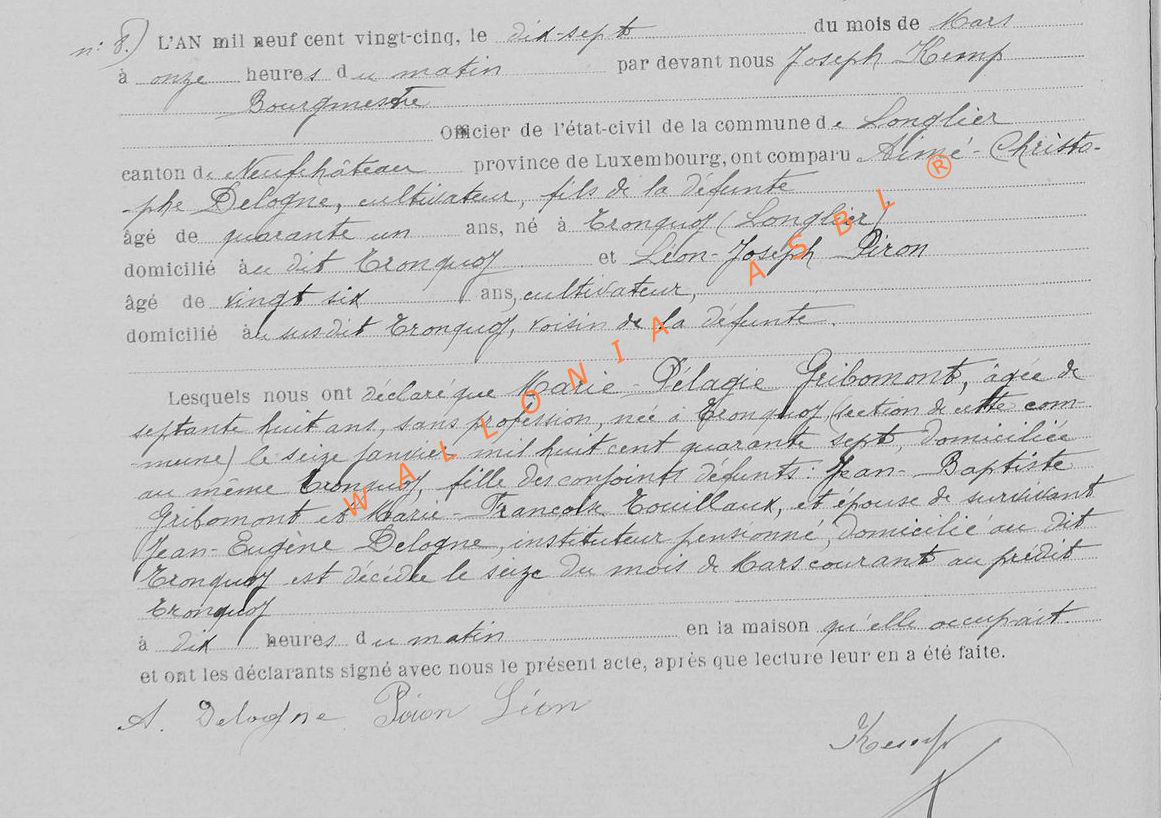 n: 8.) L'AN mil neuf cent vingt-cinq, le dix-sept du mois de Mars
à onze heures du matin par devant nous Joseph Kemp
Bourgmestre
Officier de l'état-civil de la commune de Longlier
canton de Neufchâteau province de Luxembourg, ont comparu Aimé-Christo-
-phe Delogne, cultivateur, fils de la défunte
âgé de quarante un ans, né à Tronquoy (Longlier)
domicilié au dit Tronquoy et Léon-Joseph Piron
âgé de vingt six ans, cultivateur,
domicilié au susdit Tronquoy, voisin de la défunte.
Lesquels nous ont déclaré que Marie-Pélagie Gribomont, âgée de
septante huit ans, sans profession, née à Tronquoy (section de cette com-
-mune) le seize janvier mil huit cent quarante sept, domiciliée
au même Tronquoy, fille des conjoints défunts: Jean-Baptiste
Gribomont et Marie-Françoise Touillaux, et épouse de survivant
Jean-Eugène Delogne, instituteur pensionné, domicilié au dit
Tronquoy est décédée le seize du mois de Mars courant au prédit
Tronquoy
à dix heures du matin en la maison qu'elle occupait.
et ont les déclarants signé avec nous le présent acte, après que lecture leur en a été faite.
A. Delogne Piron Léon
Kemp
WALLONIA ASBL ®